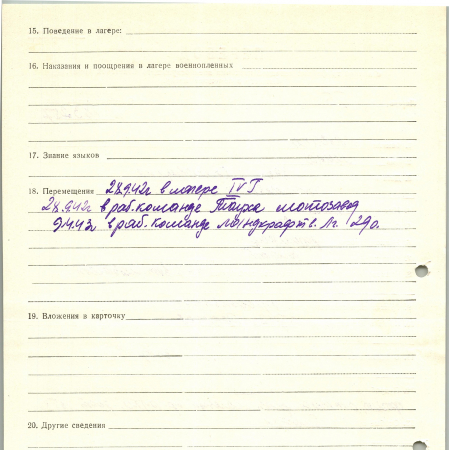 15. Поведение в лагере:
16. Наказания и поощрения в лагере военнопленных
17. Знание языков
18. Перемещения 28.9.42г в лагере IV Г
28.9.42г в раб. команде мотозавод
9.4.43г в раб. команде Ландкрафтв. Лг.
19. Вложения в карточку
20. Другие сведения